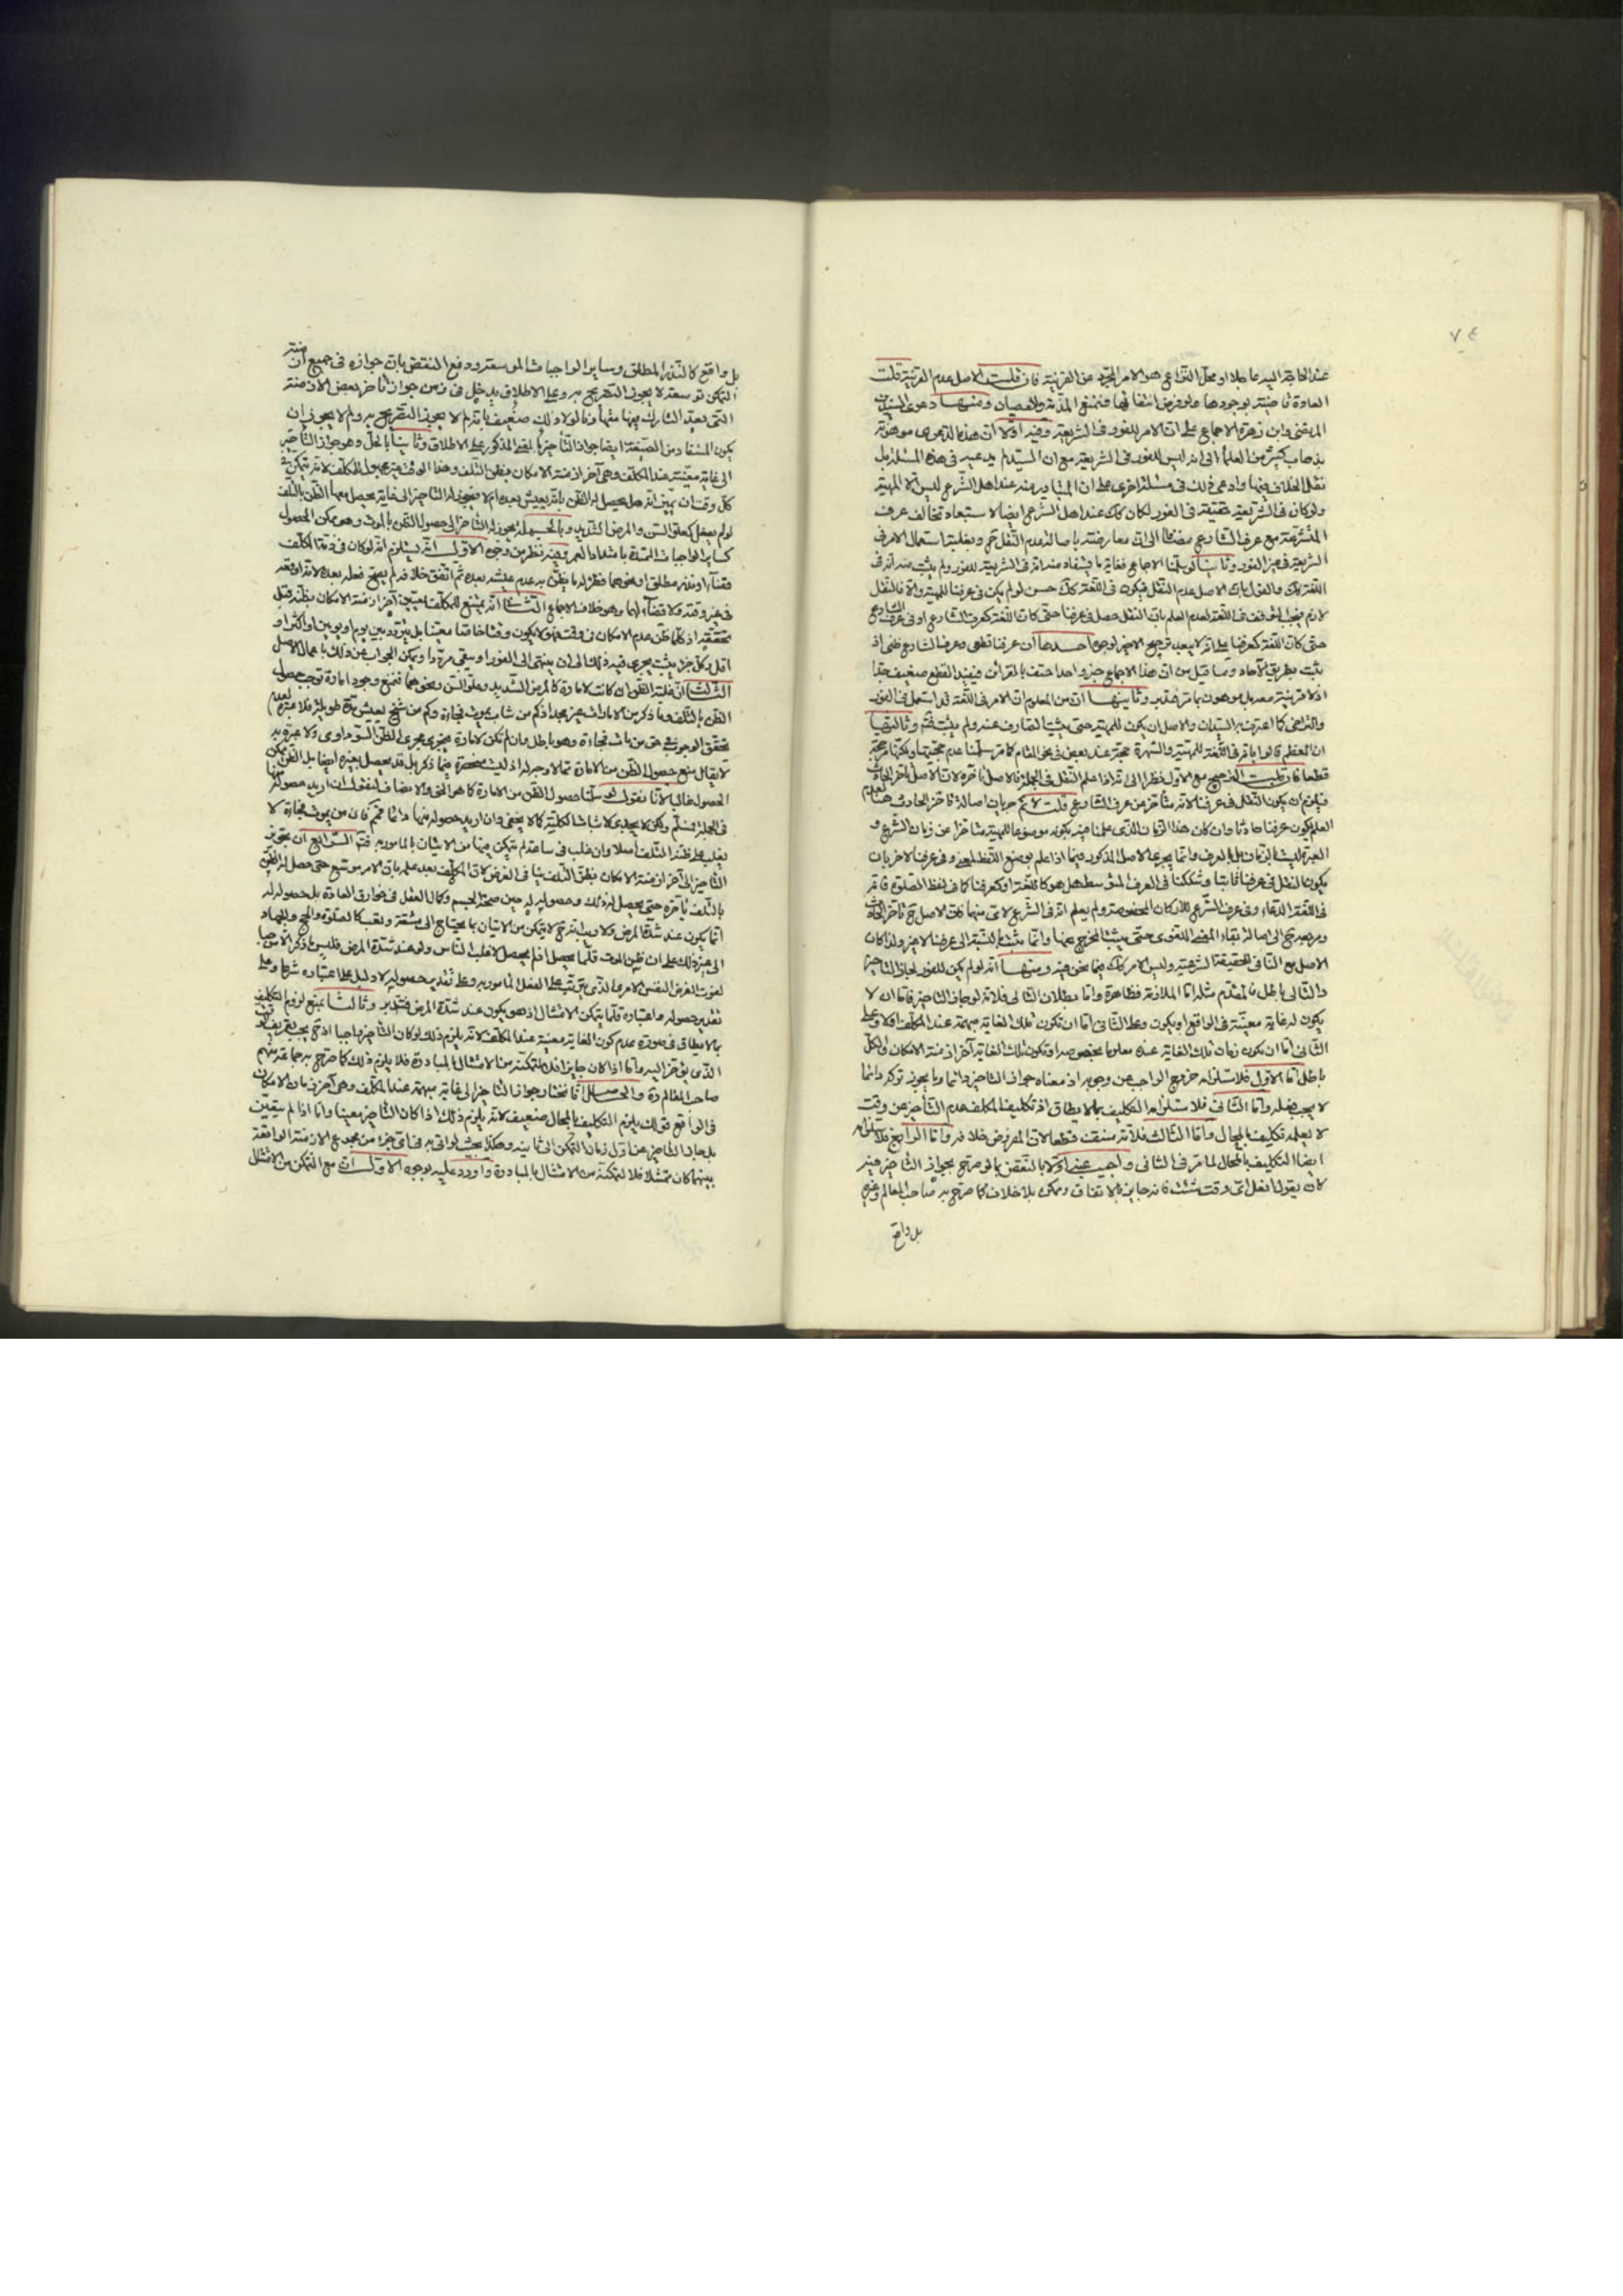 ٧٤
عند الحاجة اليه عاجلا او محل النزاع هو الامر المجرد عن القرينة فان قلت الاصل عدم القرينة قلت
العادة قاضية بوجودها ولو فرض انتفائها فنمنع المذمة والعصيان ومنها دعوى السيدين
المرتضى وابن زهرة الاجماع على ان الامر للفور في الشريعة وفيه اولا ان هذه الدعوى موهونة
بذهاب كثير من العلماء الى انه ليس للفور في الشريعة مع ان السيد لم يدعيه في هذه المسئلة بل
نقل الخلاف فيها وادعى ذلك في مسئلة اخرى على ان المتبادر منه عند اهل الشرع ليس الا المهية
ولو كان في الشريعة حقيقة في الفور لكان كك عند اهل الشرع ايضا لاستبعاد تخالف عرف
المتشرعة مع عرف الشارع مضافا الى ان معارضته باصالة عدم النقل وبغلبة استعمال الامر في
الشريعة في غير الفور وثانيا لو سلمنا الاجماع فغاية ما يستفاد منه انه في الشريعة للفور ولم يثبت منه انه في
اللغة كك والقول بان الاصل عدم النقل فيكون في اللغة كك حسن لو لم يكن في عرفنا للمهية والا فالنقل
لازم فيجب التوقف في اللغة لعدم العلم بان النقل حصل في عرفنا حتى كان اللغة كعرف الشارع او في عرف الشارع
حتى كان اللغة كعرفنا على انه لا يبعد ترجيح الاخير لوجوه احدها ان عرفنا قطعي وعرف الشارع ظني اذ
يثبت بطريق الاحاد وما قيل من ان هذا الاجماع خبر واحد احتف بالقرائن فيفيد القطع ضعيف جدا
اذ لا قرينة معه بل موهون بما مر عليه وثانيها ان من المعلوم ان الامر في اللغة قد استعمل في الفور
والتراخي كما اعترف به السيدان والاصل ان يكون للمهية حتى يثبت التعارف عنه ولم يثبت فتم وثالثها
ان المعظم قالوا بانه في اللغة للمهية والشهرة حجة عند بعض في نحو المقام كما مر سلمنا عدم حجيتها ولكنها مرجحة
قطعا فان قلت الترجيح مع الاول نظرا الى انه اذا علم النقل في الجملة فالاصل تاخره لان الاصل تاخر الحادث
فيلزم ان يكون النقل في عرفنا لانه متاخر عن عرف الشارع قلت لا نم جريان اصالة تاخر الحادث هنا لعدم
العلم بكون عرفنا حادثا وان كان هذا الزمان الذي علمنا فيه بكونه موضوعا للمهية متاخرا عن زمان الشرع و
العبرة ليست بالزمان بل بالعرف وانما يجري الاصل المذكور فيما اذا علم بوضع اللفظ لمعنى وفي عرفنا لاخر بان
يكون النقل في عرفنا ثابتا وشككنا في العرف المتوسط هل هو كاللغة او كعرفنا كما في لفظ الصلوة فانه
في اللغة الدعاء وفي عرف المتشرع للاركان المخصوصة ولم يعلم انه في الشرع لاي منهما فان الاصل ح تاخر الحادث
ومرجعه ح الى اصالة بقاء المعنى اللغوي حتى يثبت المخرج عنها وانما يثبت بالنسبة الى عرفنا لا غير ولذا كان
الاصل مع النافي للحقيقة الشرعية وليس الامر كك فيما نحن فيه ومنها انه لو لم يكن للفور لجاز التاخير
والتالي باطل فالمقدم مثله اما الملازمة فظاهرة واما بطلان التالي فلانه لو جاز التاخير فاما ان لا
يكون له غاية معينة في الواقع او يكون وعلى الثاني اما ان تكون تلك الغاية مبهمة عند المكلف او لا وعلى
الثاني اما ان يكون زمان تلك الغاية عنده معلوما بخصوصه او تكون تلك الغاية آخر ازمنة الامكان والكل
باطل اما الاول فلاستلزامه خروج الواجب عن وجوبه اذ معناه جواز التاخير دائما وما يجوز تركه دائما
لا يجب فعله واما الثاني فلاستلزامه التكليف بما لا يطاق اذ تكليف المكلف بعدم التأخير عن وقت
لا يعلمه تكليف بالمحال واما الثالث فلانه منتف قطعا لان المفروض خلافه واما الرابع فلاستلزامه
ايضا التكليف بالمحال لما مر في الثاني واجيب عنه اولا بالنقض بما لو صرح بجواز التاخير فيه
كان يقول افعل اي وقت شئت فانه جايز بالاتفاق وممكن بلا خلاف كما صرح به صاحب المعالم وغيره
بل واقع
بل واقع كالنذر المطلق وساير الواجبات الموسعة ودفع النقض بان جوازه في جميع ازمنة
التمكن توسعة لا يجوز التصريح به وعلى الاطلاق يدخل في زمن جواز تاخر بعض الازمنة
التي يعد التارك فيها متهاونا لولا ذلك ضعيف بانه لا يجوز التصريح به ولم لا يجوز ان
يكون المستفاد من الصيغة ايضا جواز التأخير بالمعنى المذكور على الاطلاق وثانيا بالحل وهو جواز التأخير
الى غاية معينة عند المكلف وهي آخر ازمنة الامكان بظن التلف وهذا الوقت غير مجهول للمكلف لانه يتمكن في
كل وقت ان يميز انه هل يحصل له الظن بانه يعيش بعده ام لا فيجوز له التاخير الى غاية يحصل معها الظن بالتلف
لو لم يفعل كعلو السن والمرض الشديد وبالجملة يجوز له التاخر الى حصول الظن بالموت وهو ممكن الحصول
كساير الواجبات الممتدة بامتداد العمر وفيه نظر من وجوه الاول انه يستلزم انه لو كان في ذمة المكلف
قضاء او نذر مطلق او نحوهما فظن له ما يظن به عدم عيشه بعده ثم اتفق خلافه لم يصح فعله بعده لانه اوقعه
في غير وقته ولا قضاء لهما وهو خلاف الاجماع الثاني انه يمتنع للمكلف تعيين آخر ازمنة الامكان بظنه قبل
تحققه اذ كلما ظن عدم الامكان في وقت فهو لا يكون وقتا خاصا معينا بل يتردد بين يوم او يومين او اكثر او
اقل وكل جزء يثبت يجري فيه ذلك الى ان ينتهي الى الفور او يبقى مرددا ويمكن الجواب عن ذلك باعمال الاصل
الثالث ان غلبة الظن ان كانت لامارة كالمرض الشديد وعلو السن ونحوهما فنمنع وجود امارة توجب حصول
الظن بالتلف وما ذكر من الامارات غير مجد اذ كم من شاب يموت فجاءة وكم من شيخ يعيش مدة طويلة فلا عبرة لعدم
تحقق الوجوب في حق من مات فجاءة وهو باطل وان لم تكن لامارة فيجري مجرى الظن السوداوي ولا عبرة به
لا يقال منع حصول الظن من الامارة مما لا وجه له اذ ليست منحصرة فيما ذكر بل قد يحصل بغيره ايضا بل الظن ممكن
الحصول غالبا لانا نقول لو سلمنا حصول الظن من الامارة كما هو الحق والانصاف فنقول ان اريد حصوله منها
في الجملة فمسلم ولكن لا يجدي لاثبات الكلية كما لا يخفى وان اريد حصوله منها دائما فمم فان من يموت فجاءة لا
يغلب على ظنه التلف اصلا وان غلب في ساعة لم يتمكن فيها من الاتيان بالمامور به فتم الرابع ان تجويز
التاخير الى آخر ازمنة الامكان بظن التلف ينافي الغرض لان المكلف بعد علمه بان الامر موسع حتى حصل له الظن
بالتلف يأخره حتى يحصل له ذلك وحصوله له حين صحة الجسم وكمال العقل في خوارق العادة بل حصوله له
انما يكون عند شدة المرض ولا ريب انه ح لا يتمكن من الاتيان بما يحتاج الى مشقة وتعب كالصلوة والحج والجهاد
الى غير ذلك على ان ظن الموت قلما يحصل اذ لم يحصل لاغلب الناس ولو عند شدة المرض فليس ما ذكر الا موجبا
لفوت الغرض النفس الامري الذي يترتب على الفعل المامور به وعلى تقدير حصوله لا دليل على اعتباره شرعا وعلى
تقدير حصوله واعتباره قلما يتمكن الامتثال اذ هو يكون عند شدة المرض فتدبر وثالثا بمنع لزوم التكليف
بما لا يطاق في صورة عدم كون الغاية معينة عند المكلف لانه يلزم ذلك لو كان التأخير واجبا اذ ح يجب تعريف الوقت
الذي يؤخر اليه واما اذا كان جايزا فلا لتمكنه من الامتثال بالمبادرة فلا يلزم ذلك كما صرح به جماعة منهم
صاحب المعالم ره والحاصل انا نختار جواز التأخير الى غاية مبهمة عند المكلف وهي آخر زمان الامكان
في الواقع قولك يلزم التكليف بالمحال ضعيف لانه يلزم ذلك اذا كان التأخير معينا واما اذا لم يتعين
بل جاز التاخير من اول زمان التمكن الى ثانيه وهكذا بحيث لو اتى به في اي جزء من مجموع الازمنة الواقعة
بينهما كان ممتثلا فلا لتمكنه من الامتثال بالمبادرة واورد عليه بوجوه الاول ان مع التمكن من الامتثال